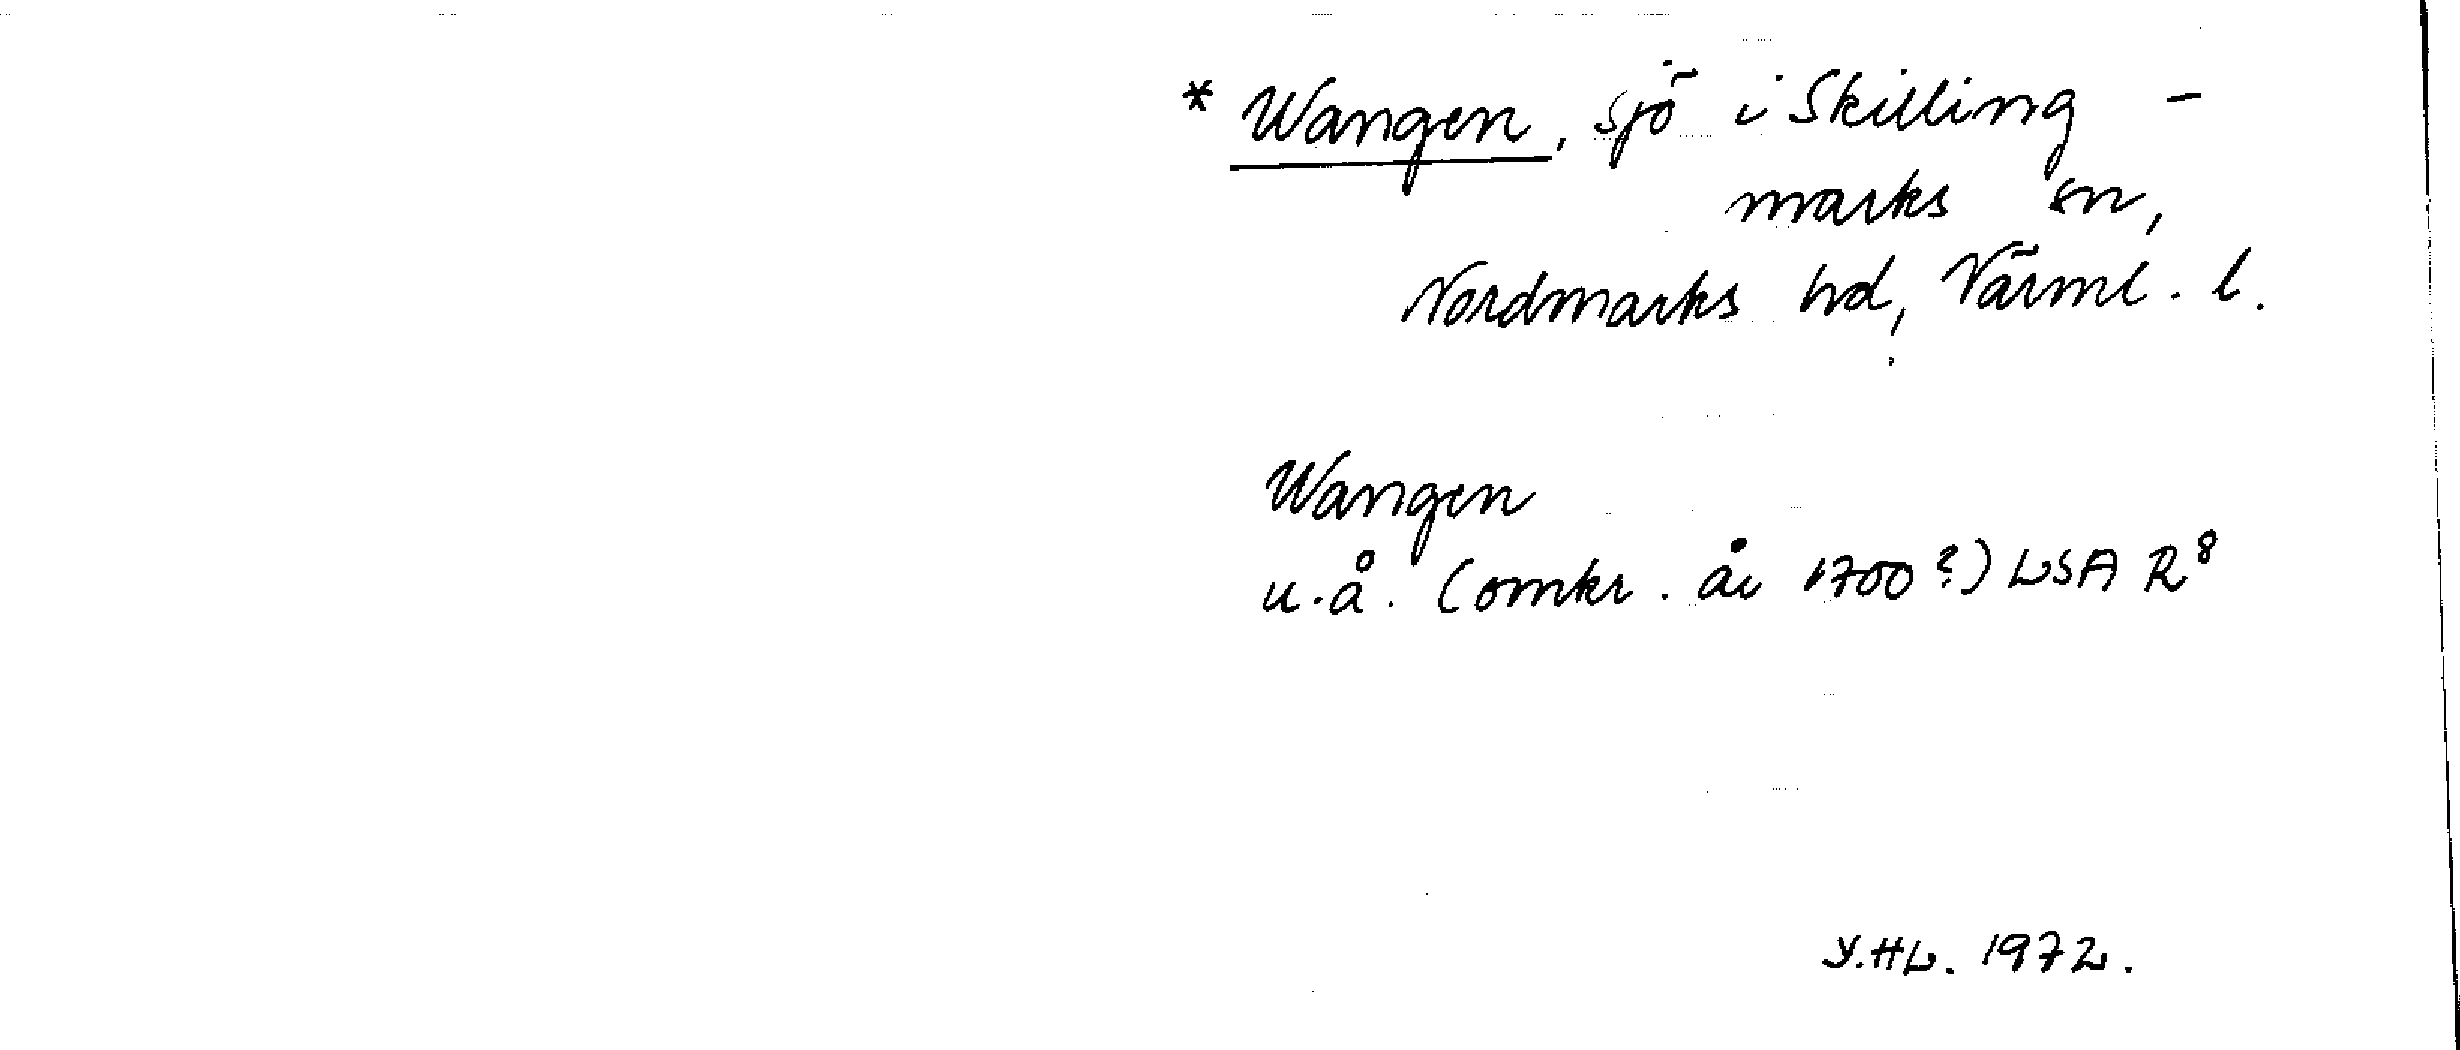 * Wangen, sjö i Skilling-
marks sn,
Nordmarks hd, Värml. l.
Wangen
u.å. (omkr. år 1700?) LSA R8
Y.HL. 1972.